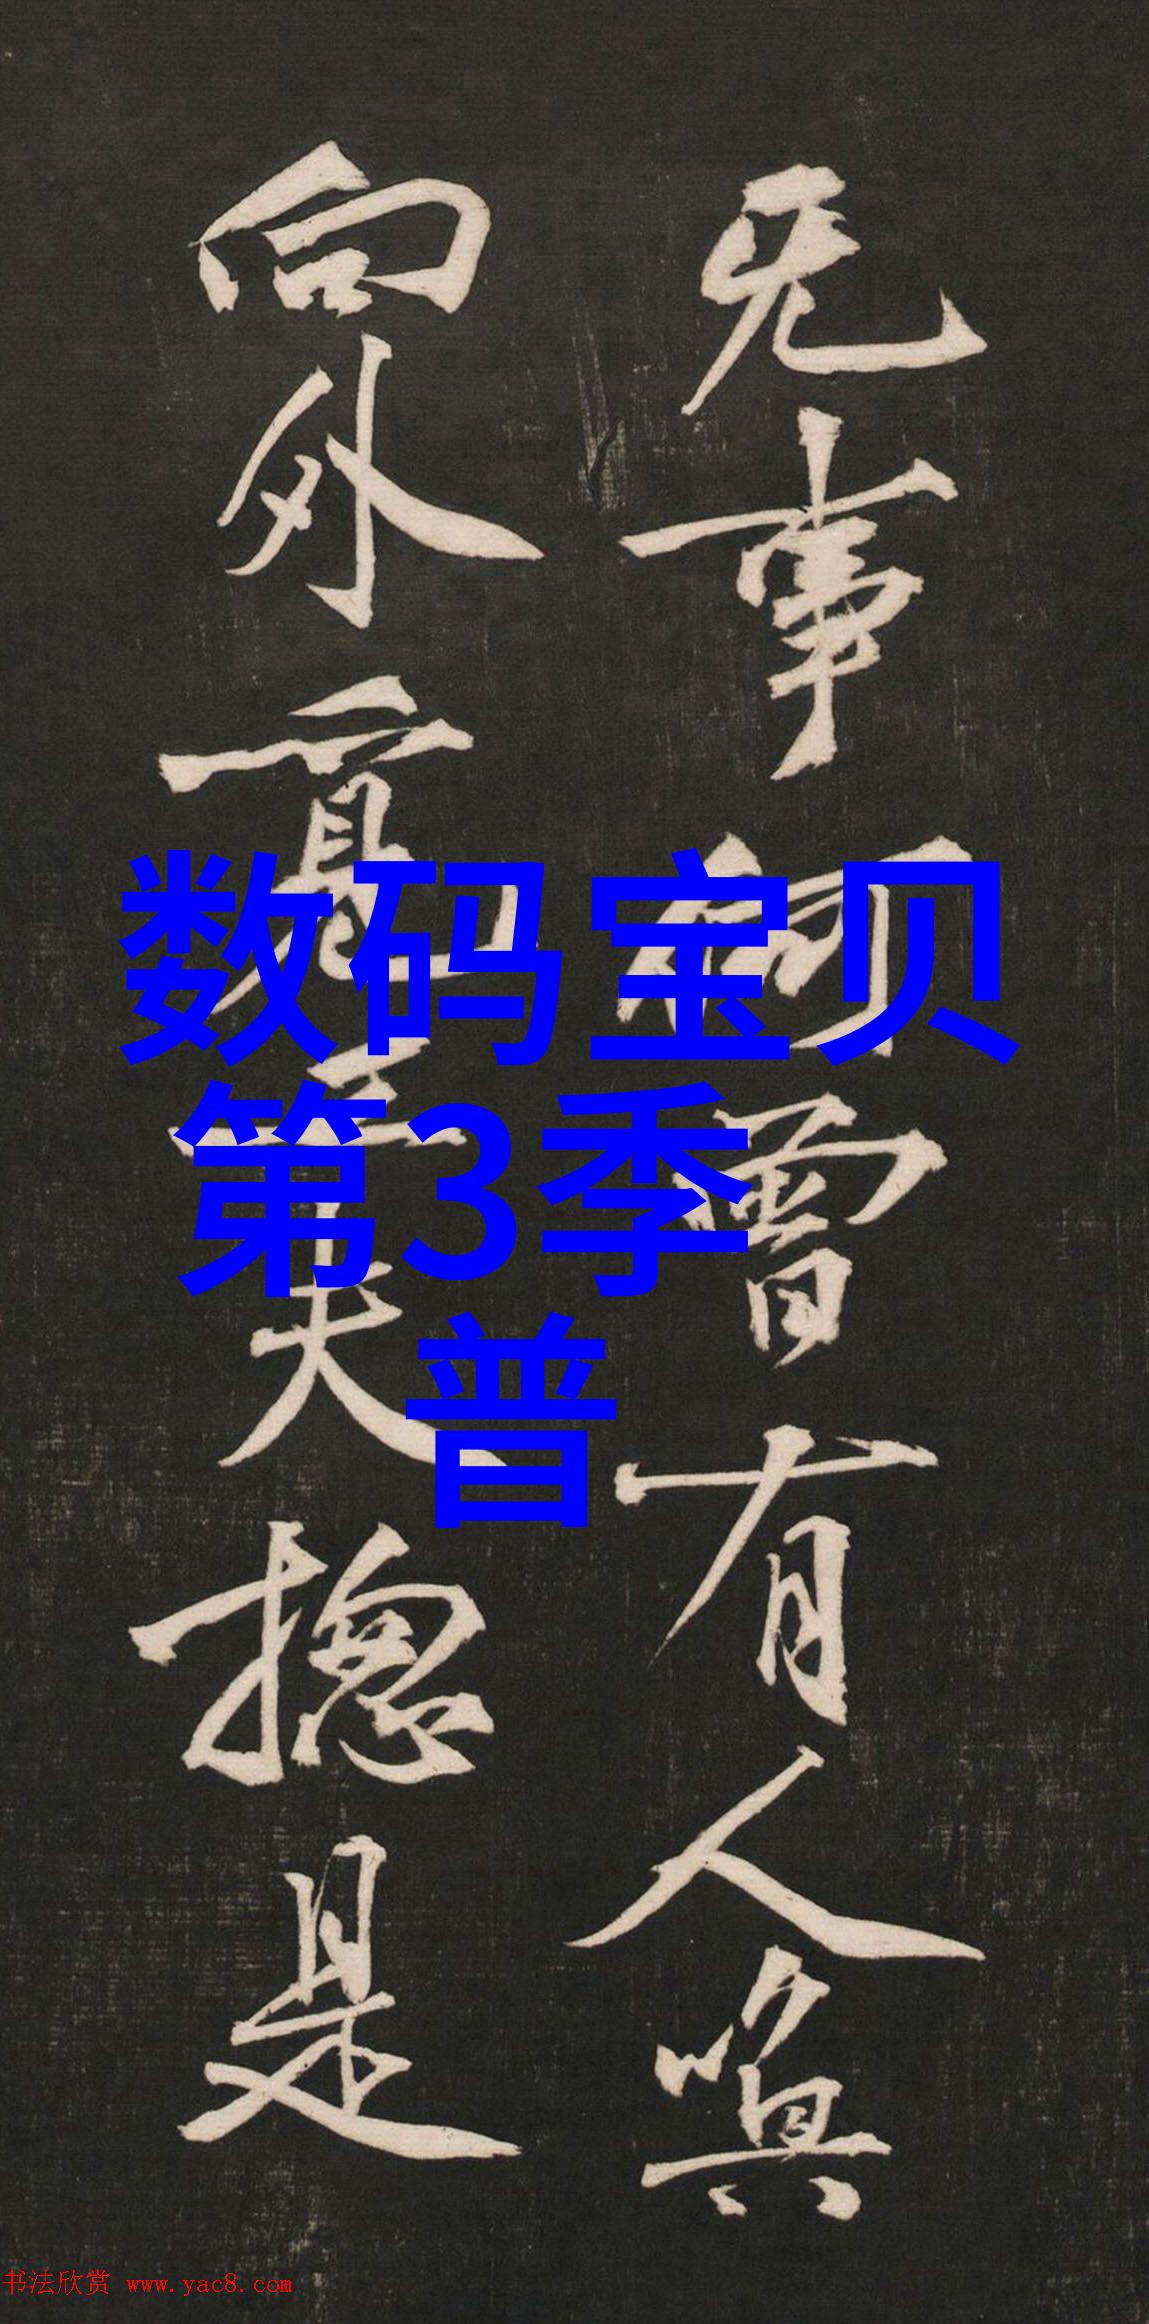 无事何曾有人
向外覓工夫揔是
数码宝贝
第3季
普
书法欣赏 www.yac8.com